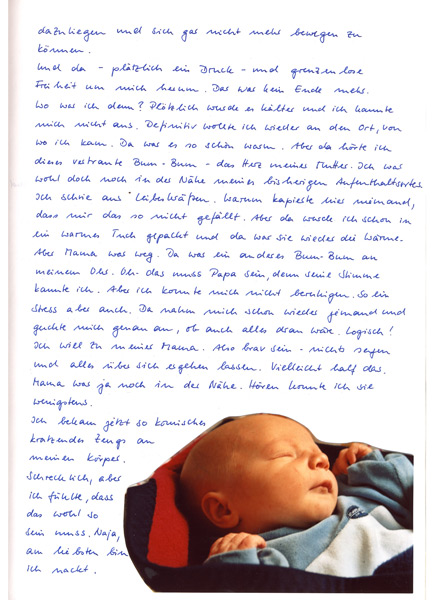 dazuliegen und sich gar nicht mehr bewegen zu
können.
Und da - plötzlich ein Druck - und grenzenlose
Freiheit um mich herum. Das war kein Ende mehr.
Wo war ich denn? Plötzlich wurde es kälter und ich kannte
mich nicht aus. Definitiv wollte ich wieder an den Ort, von
wo ich kam. Da war es so schön warm. Aber da hörte ich
dieses vertraute Bum-Bum - das Herz meiner Mutter. Ich war
wohl doch noch in der Nähe meines bisherigen Aufenthaltsortes.
Ich schrie aus Leibeskräften. Warum kapierte hier niemand,
dass mir das so nicht gefällt. Aber da wurde ich schon in
ein warmes Tuch gepackt und da war sie wieder die Wärme.
Aber Mama was weg. Da war ein anderes Bum-Bum an
meinem Ohr. Uh- das muss Papa sein, denn seine Stimme
kannte ich. Aber ich konnte mich nicht beruhigen. So ein
Stress aber auch. Da nahm mich schon wieder jemand und
guckte mich genau an, ob auch alles dran wäre. Logisch!
Ich will zu meiner Mama. Also brav sein - nichts sagen
und alles über sich ergehen lassen. Vielleicht half das.
Mama war ja noch in der Nähe. Hören konnte ich sie
wenigstens.
Ich bekam jetzt so komisches
kratzendes Zeugs an
meinen Körper.
Schrecklich, aber
ich fühlte, dass
das wohl so
sein muss. Naja,
am liebsten bin
ich nackt.